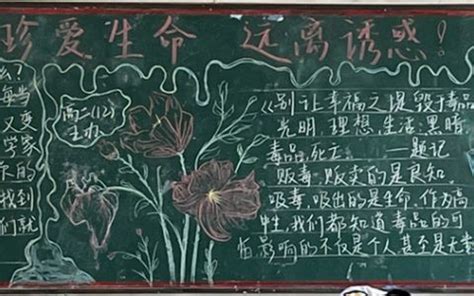 珍爱生命 远离诱惑！
么！
每当
又变
学家
找到
们就
高二(12)
主办
《别让幸福之堤毁于毒品
光明.理想.生活.黑暗
毒品.死亡. ——题记
贩毒.贩卖的是良知.
吸毒.吸出的是生命.作为高
中生,我们都知道毒品的可
怕.影响的不仅是个人甚至是无辜